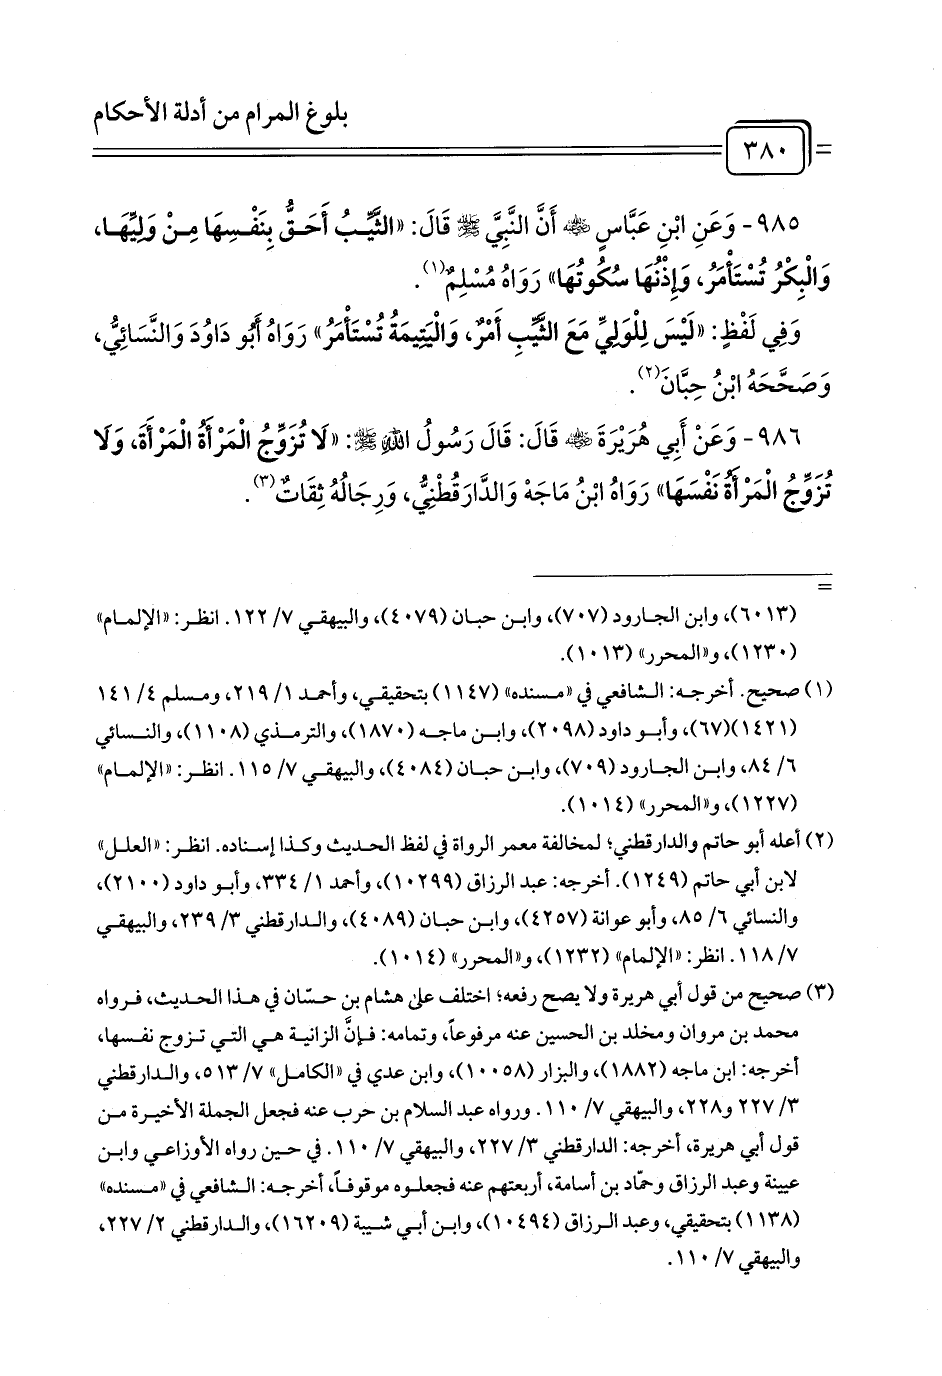 بلوغ المرام من أدلة الأحكام
٣٨٠
٩٨٥- وَعَنِ ابْنِ عَبَّاسٍ ﵁ أَنَّ النَّبِيَّ ﷺ قَالَ: «الثَّيِّبُ أَحَقُّ بِنَفْسِهَا مِنْ وَلِيِّهَا،
وَالْبِكْرُ تُسْتَأْمَرُ، وَإِذْنُهَا سُكُوتُهَا» رَوَاهُ مُسْلِمٌ(١).
وَفِي لَفْظٍ: «لَيْسَ لِلْوَلِيِّ مَعَ الثَّيِّبِ أَمْرٌ، وَالْيَتِيمَةُ تُسْتَأْمَرُ» رَوَاهُ أَبُو دَاوُدَ وَالنَّسَائِيُّ،
وَصَحَّحَهُ ابْنُ حِبَّانَ(٢).
٩٨٦- وَعَنْ أَبِي هُرَيْرَةَ ﵁ قَالَ: قَالَ رَسُولُ اللهِ ﷺ: «لَا تُزَوِّجُ الْمَرْأَةُ الْمَرْأَةَ، وَلَا
تُزَوِّجُ الْمَرْأَةُ نَفْسَهَا» رَوَاهُ ابْنُ مَاجَهْ وَالدَّارَقُطْنِيُّ، وَرِجَالُهُ ثِقَاتٌ(٣).
=
(٦٠١٣)، وابن الجارود (٧٠٧)، وابن حبان (٤٠٧٩)، والبيهقي ٧/ ١٢٢. انظر: «الإلمام»
(١٢٣٠)، و«المحرر» (١٠١٣).
(١) صحيح. أخرجه: الشافعي في «مسنده» (١١٤٧) بتحقيقي، وأحمد ١/ ٢١٩، ومسلم ٤/ ١٤١
(١٤٢١)(٦٧)، وأبو داود (٢٠٩٨)، وابن ماجه (١٨٧٠)، والترمذي (١١٠٨)، والنسائي
٦/ ٨٤، وابن الجارود (٧٠٩)، وابن حبان (٤٠٨٤)، والبيهقي ٧/ ١١٥. انظر: «الإلمام»
(١٢٢٧)، و«المحرر» (١٠١٤).
(٢) أعله أبو حاتم والدارقطني؛ لمخالفة معمر الرواة في لفظ الحديث وكذا إسناده. انظر: «العلل»
لابن أبي حاتم (١٢٤٩). أخرجه: عبد الرزاق (١٠٢٩٩)، وأحمد ١/ ٣٣٤، وأبو داود (٢١٠٠)،
والنسائي ٦/ ٨٥، وأبو عوانة (٤٢٥٧)، وابن حبان (٤٠٨٩)، والدارقطني ٣/ ٢٣٩، والبيهقي
٧/ ١١٨. انظر: «الإلمام» (١٢٣٢)، و«المحرر» (١٠١٤).
(٣) صحيح من قول أبي هريرة ولا يصح رفعه؛ اختلف على هشام بن حسّان في هذا الحديث، فرواه
محمد بن مروان ومخلد بن الحسين عنه مرفوعاً، وتمامه: فإنَّ الزانية هي التي تزوج نفسها،
أخرجه: ابن ماجه (١٨٨٢)، والبزار (١٠٠٥٨)، وابن عدي في «الكامل» ٧/ ٥١٣، والدارقطني
٣/ ٢٢٧ و٢٢٨، والبيهقي ٧/ ١١٠. ورواه عبد السلام بن حرب عنه فجعل الجملة الأخيرة من
قول أبي هريرة، أخرجه: الدارقطني ٣/ ٢٢٧، والبيهقي ٧/ ١١٠. في حين رواه الأوزاعي وابن
عيينة وعبد الرزاق وحمّاد بن أسامة، أربعتهم عنه فجعلوه موقوفاً، أخرجه: الشافعي في «مسنده»
(١١٣٨) بتحقيقي، وعبد الرزاق (١٠٤٩٤)، وابن أبي شيبة (١٦٢٠٩)، والدارقطني ٢/ ٢٢٧،
والبيهقي ٧/ ١١٠.